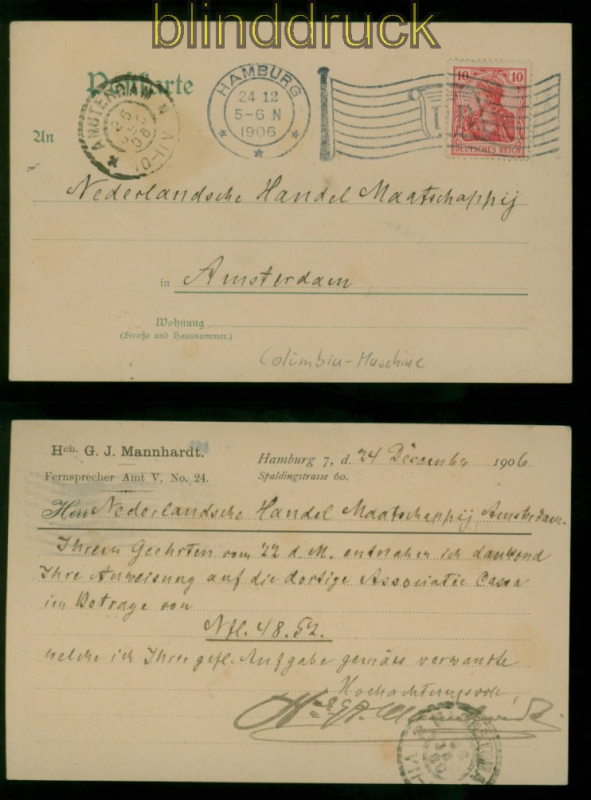 blinddruck
Postkarte
AMSTERDAM
HAMBURG
24 12
5-6 N
1906
10 10
DEUTSCHES REICH
An
Nederlandsche Handel Maatschappij
in Amsterdam
Wohnung
(Straße und Hausnummer.)
Columbia-Maschine
Hch. G. J. Mannhardt.
Fernsprecher Amt V, No. 24.
Hamburg 7, d. 24 December 1906
Spaldingstrasse 60.
Herrn Nederlandsche Handel Maatschappij, Amsterdam.
Ihrem Geehrten vom 22 d. M. entnahm ich dankend
Ihre Anweisung auf die dortige Associatie Cassa
im Betrage von
Nfl. 48.52.
welche ich Ihrer gefl. Aufgabe gemäss verwandte
Hochachtungsvoll